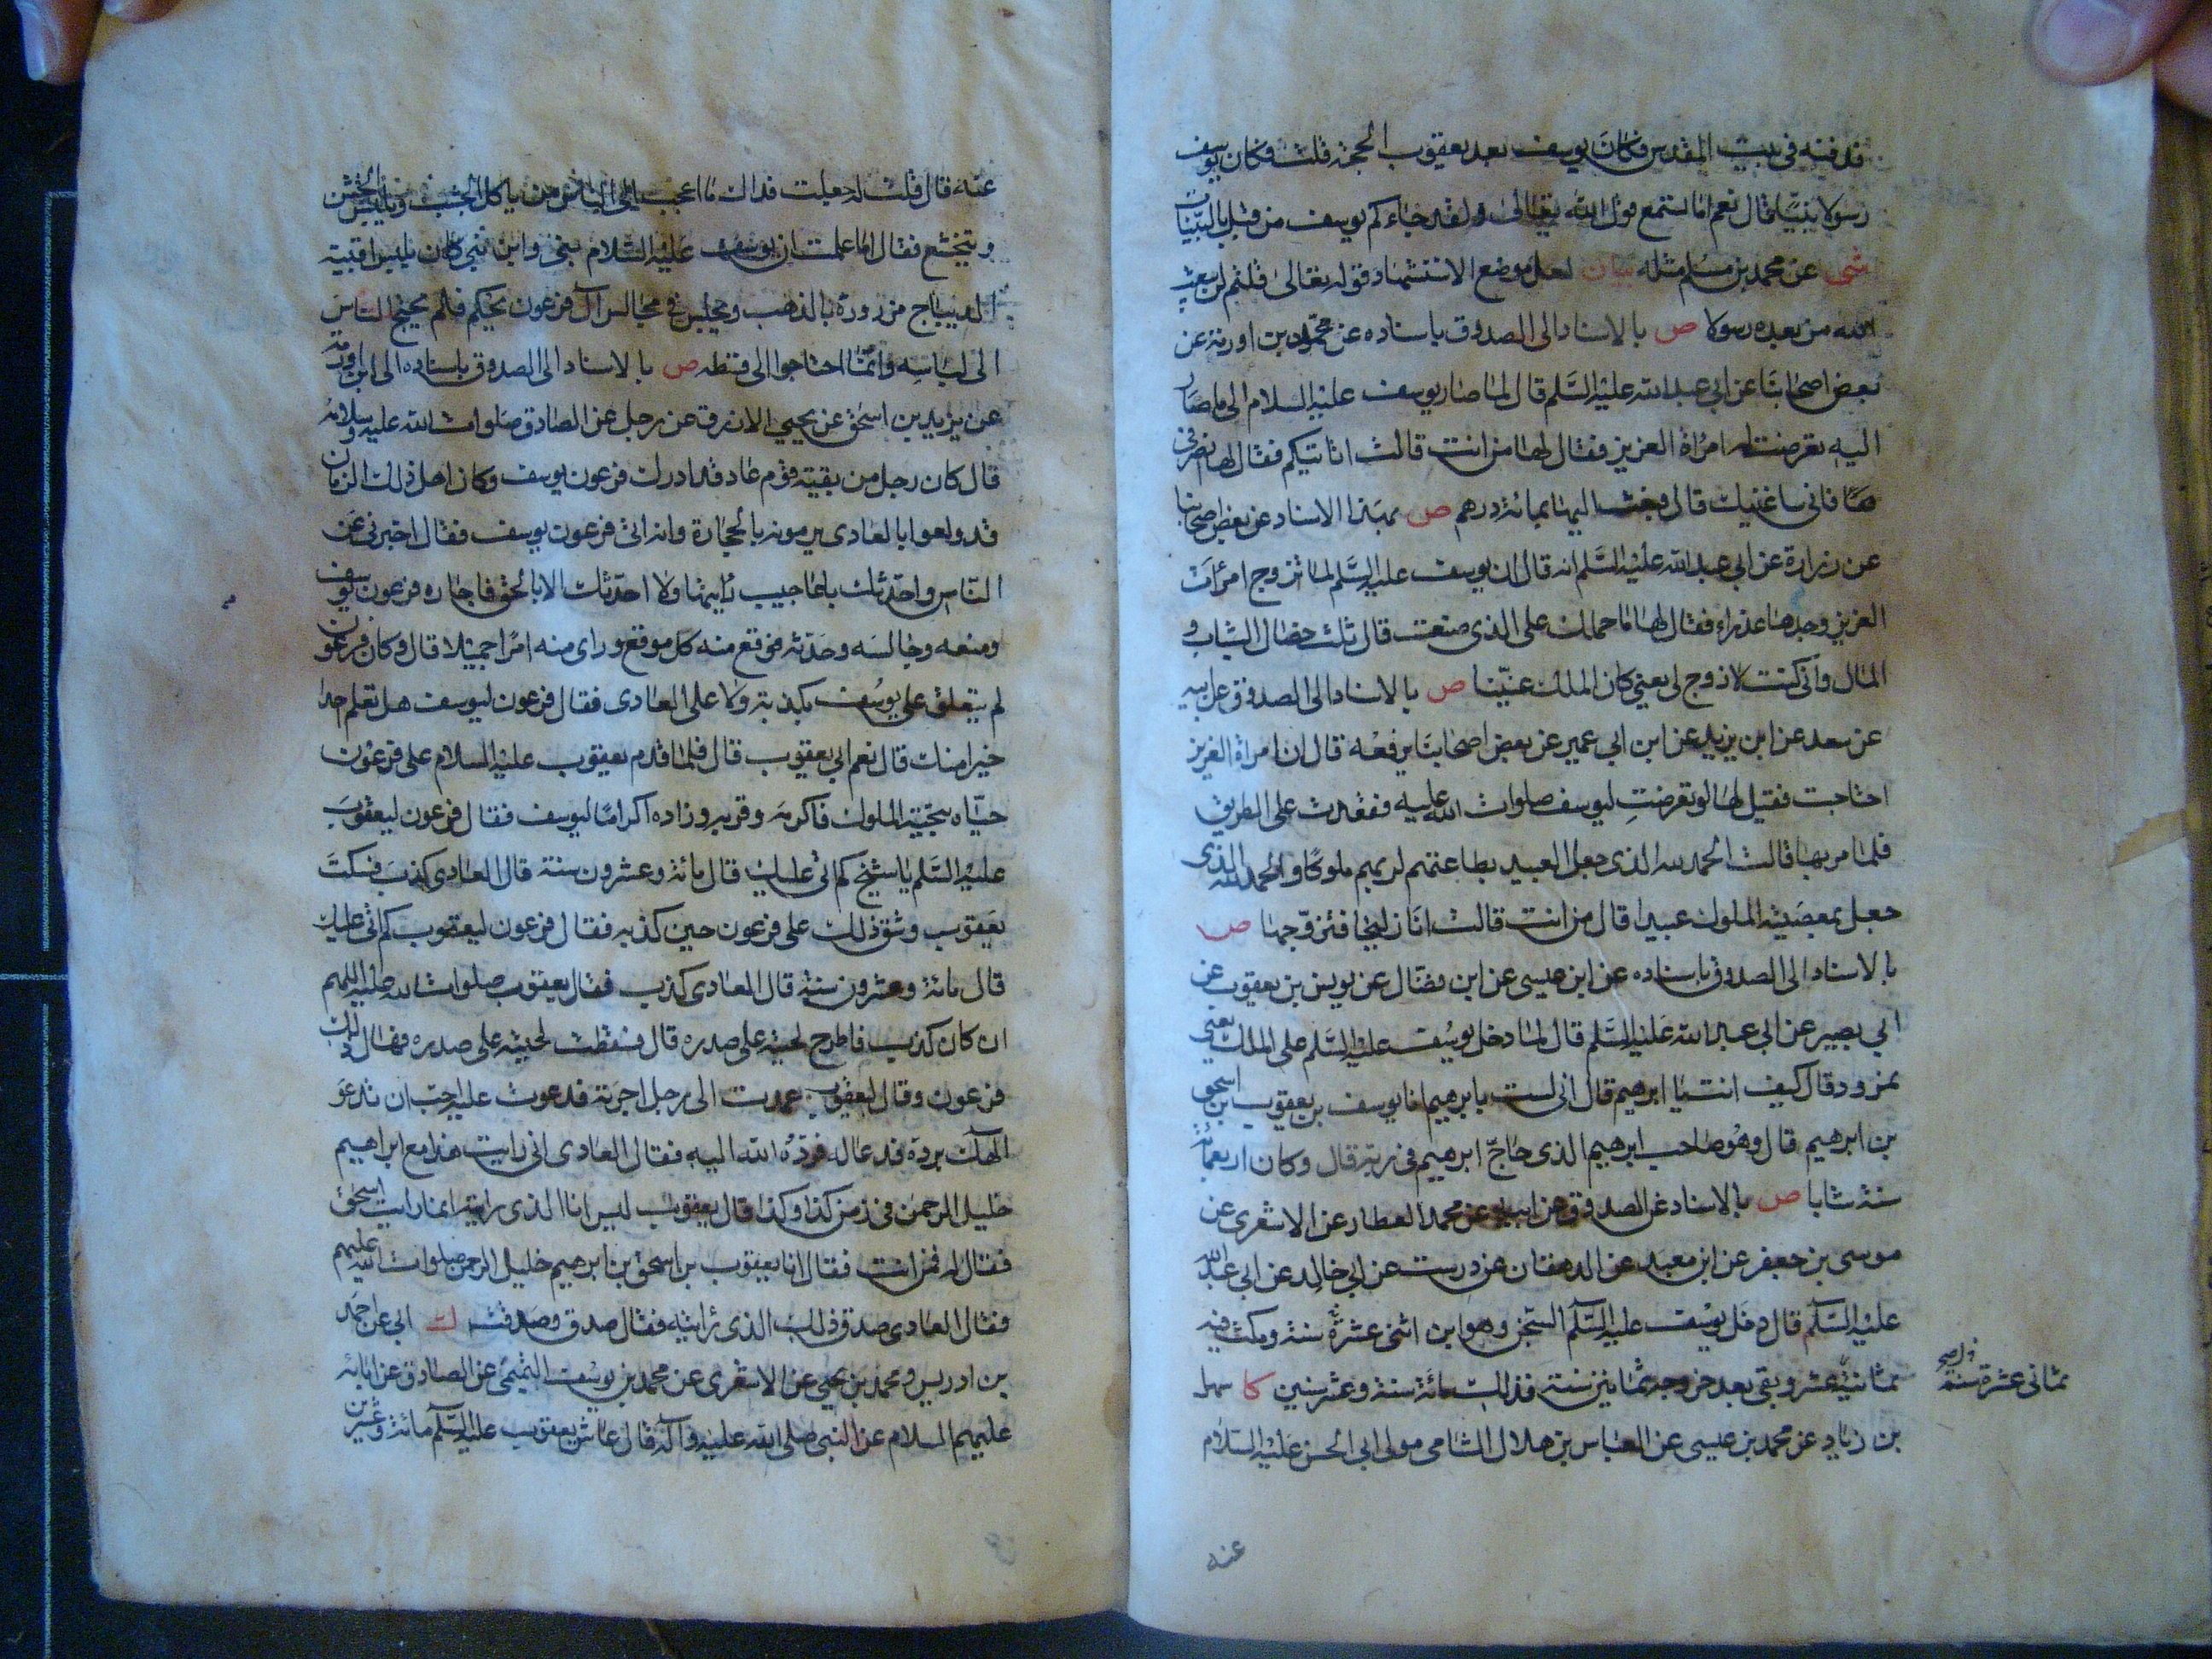 فدفنه فی بیت المقدس فکان یوسف بعد یعقوب الحجة قلت فکان یوسف
رسولا نبیّا قال نعم اما تستمع قول الله تعالی ولقد جاءکم یوسف من قبل بالبیّنات
شی عن محمد بن مسلم مثله بیان لعل موضع الاستشهاد قوله تعالی قلتم لن یبعث
الله من بعده رسولا ص بالاسناد الی الصدوق باسناده عن محمد بن اورمة عن
بعض اصحابنا عن ابی عبد الله علیه السّلم قال لما صار یوسف علیه السلام الی ما صار
الیه تعرضت له امراة العزیز فقال لها من انت قالت انا تیکم فقال لها انصرفی
فانی ساغنیک قال فبعث الیها بمائة درهم ص بهذا الاسناد عن بعض اصحابنا
عن زرارة عن ابی عبد الله علیه السّلم انه قال ان یوسف علیه السّلم لما تزوج امرأت
العزیز وجدها عذراء فقال لها ما حملک علی الذی صنعت قال ثلث خصال الشباب و
المال وانی کنت لا زوج لی یعنی کان الملک عنّینا ص بالاسناد الی الصدوق عن ابیه
عن سعد عن ابن یزید عن ابن ابی عمیر عن بعض اصحابنا یرفعه قال ان امراة العزیز
احتاجت فقیل لها لو تعرضت لیوسف صلوات الله علیه فقعدت علی الطریق
فلما مر بها قالت الحمد لله الذی جعل العبید بطاعتهم لربهم ملوکا والحمد لله الذی
جعل بمعصیته الملوک عبیدا قال من انت قالت انا زلیخا فتزوّجها ص
بالاسناد الی الصدوق باسناده عن ابن عیسی عن ابن فضّال عن یونس بن یعقوب عن
ابی بصیر عن ابی عبد الله علیه السّلم قال لما دخل یوسف علیه السّلم علی الملک یعنی
نمرود قال کیف انت یا ابرهیم قال انی لست بابرهیم انا یوسف بن یعقوب بن اسحق
بن ابرهیم قال وهو صاحب ابرهیم الذی حاجّ ابرهیم فی ربه قال وکان اربعمائة
سنة شابا ص بالاسناد عن الصدوق عن ابیه عن محمد العطار عن الاشعری عن
موسی بن جعفر عن ابن معبد عن الدهقان عن درست عن ابی خالد عن ابی عبد الله
علیه السّلم قال دخل یوسف علیه السّلم السجن وهو ابن اثنی عشرة سنة ومکث فیه
ثمانیة عشر وبقی بعد خروجه ثمانین سنة فذلک مائة سنة وعشر سنین کا سهل
ثمانی عشرة سنة
بن زیاد عن محمد بن عیسی عن العباس بن هلال الشامی مولی ابی الحسن علیه السلام
عنه
عنه قال قلت له جعلت فداک ما اعجب الی الناس من یاکل الجشب ویلبس الخشن
ویتخشع فقال اما علمت ان یوسف علیه السّلام نبی وابن نبی کان یلبس اقبیة
الدیباج مزرورة بالذهب ویجلس فی مجالس آل فرعون یحکم فلم یحتج الناس
الی لباسه وانّما احتاجوا الی قسطه ص بالاسناد الی الصدوق باسناده الی ابن اورمة
عن یزید بن اسحق عن یحیی الازرق عن رجل عن الصادق صلوات الله علیه وسلامه
قال کان رجل من بقیة قوم عاد قد ادرک فرعون یوسف وکان اهل ذلک الزمان
قد ولعوا بالعادی یرمونه بالحجارة وانه اتی فرعون یوسف فقال اجرنی عن
الناس واحدثک باعاجیب رایتها ولا احدّثک الا بالحق فاجاره فرعون یوسف
ومنعه وجالسه وحدثه فوقع منه کل موقع ورای منه امرا جمیلا قال وکان فرعون
لم یتعلق علی یوسف بکذبة ولا علی العادی فقال فرعون لیوسف هل تعلم احدا
خیرا منک قال نعم ابی یعقوب قال فلما قدم یعقوب علیه السلام علی فرعون
حیّاه بتحیة الملوک فاکرمه وقربه وزاده اکراما لیوسف فقال فرعون لیعقوب
علیه السّلم یا شیخ کم اتی علیک قال مائة وعشرون سنة قال العادی کذب فسکت
یعقوب وشق ذلک علی فرعون حین کذبه فقال فرعون لیعقوب کم اتی علیک
قال مائة وعشرون سنة قال العادی کذب فقال یعقوب صلوات الله علیه اللهم
ان کان کذب فاطرح لحیته علی صدره قال فسقطت لحیته علی صدره فهال ذلک
فرعون وقال لیعقوب عمدت الی رجل اجرته فدعوت علیه احب ان تدعو
الهک برده فدعا له فردّه الله الیه فقال العادی انی رایت هذا مع ابراهیم
خلیل الرحمن فی زمن کذا وکذا قال یعقوب لیس انا الذی رایته انما رایت اسحق
فقال له فمن انت فقال انا یعقوب بن اسحق بن ابرهیم خلیل الرحمن صلوات الله علیهم
فقال العادی صدق ذلک الذی رایته فقال صدق وصدقت ک ابی عن احمد
بن ادریس ومحمد بن یحیی عن الاشعری عن محمد بن یوسف التمیمی عن الصادق عن ابائه
علیهم السلام عن النبی صلی الله علیه وآله قال عاش یعقوب علیه السّلم مائة وعشرین